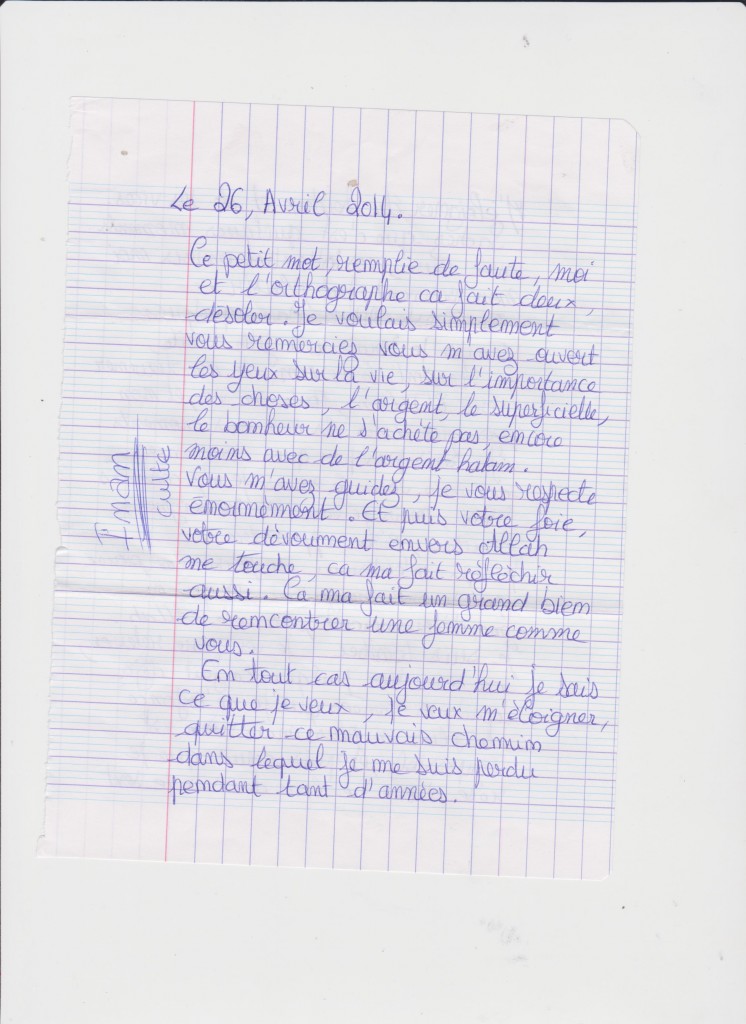 Le 26, Avril 2014.
Ce petit mot, remplie de faute, moi
et l'orthographe ca fait deux,
désoler. Je voulais simplement
vous remercies vous m'avez ouvert
les yeux sur la vie, sur l'importance
des choses, l'argent, le superficielle,
le bonheur ne s'achète pas, encore
moins avec de l'argent halam.
Vous m'avez guidez, je vous respecte
énormément. Et puis votre foie,
votre dévoument envers Allah
me touche, ca ma fait réfléchir
aussi. Ca ma fait un grand bien
de rencontrer une femme comme
vous.
En tout cas aujourd'hui je sais
ce que je veux, je veux m'éloigner,
quitter ce mauvais chemin
dans lequel je me suis perdu
pendant tant d'années.
Imam
culte